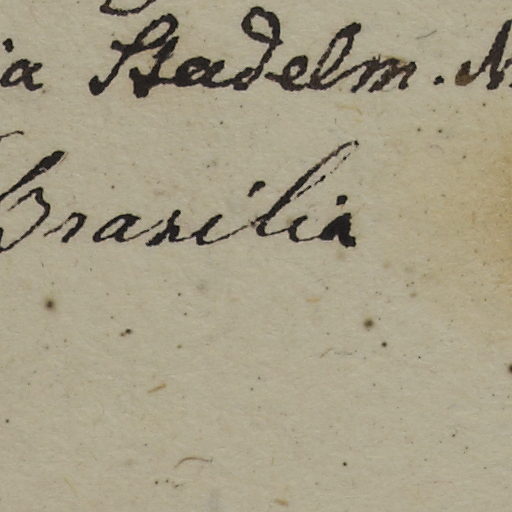 ia Stadelm. M
Brasilia